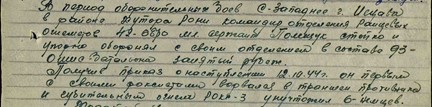 В период оборонительных боев С-Западнее г. Исцава
в районе Хутора Рони командир отделения Ранцевых
огнеметов 42-ОБРО мл. сержант Полещук стойко и
упорно оборонял с своим отделением в составе 93-
батальона занятый рубеж.
Получив приказ о наступлении 12.10.44г. он первым
с своими фокометами ворвался в траншеи противника
и губительным огнем РОКС-3 уничтожил 6-немцев.